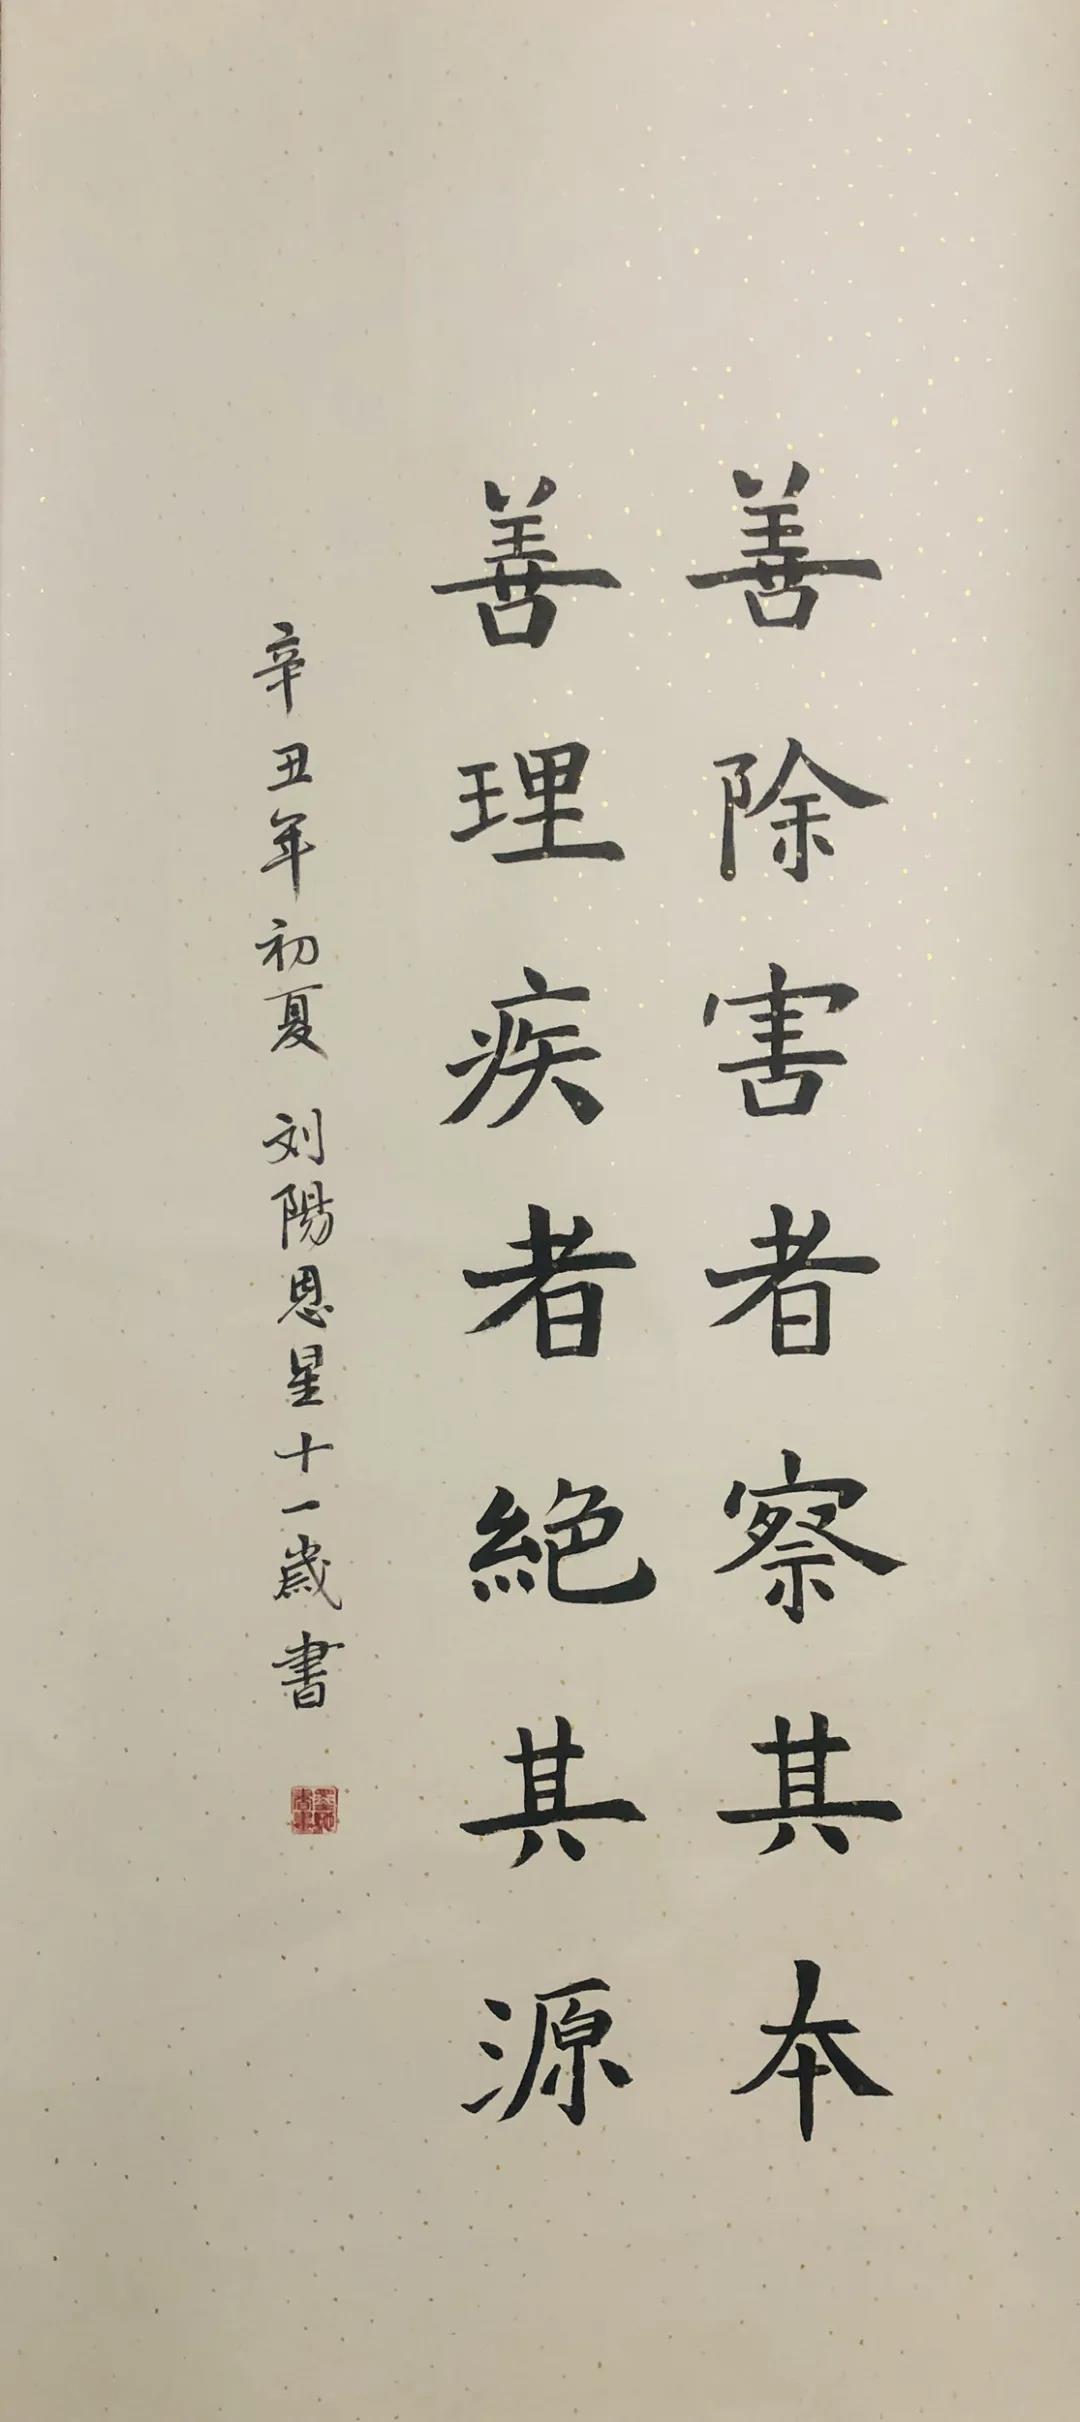 善除害者察其本
善理疾者絶其源
辛丑年初夏 刘陽恩星十一歲書